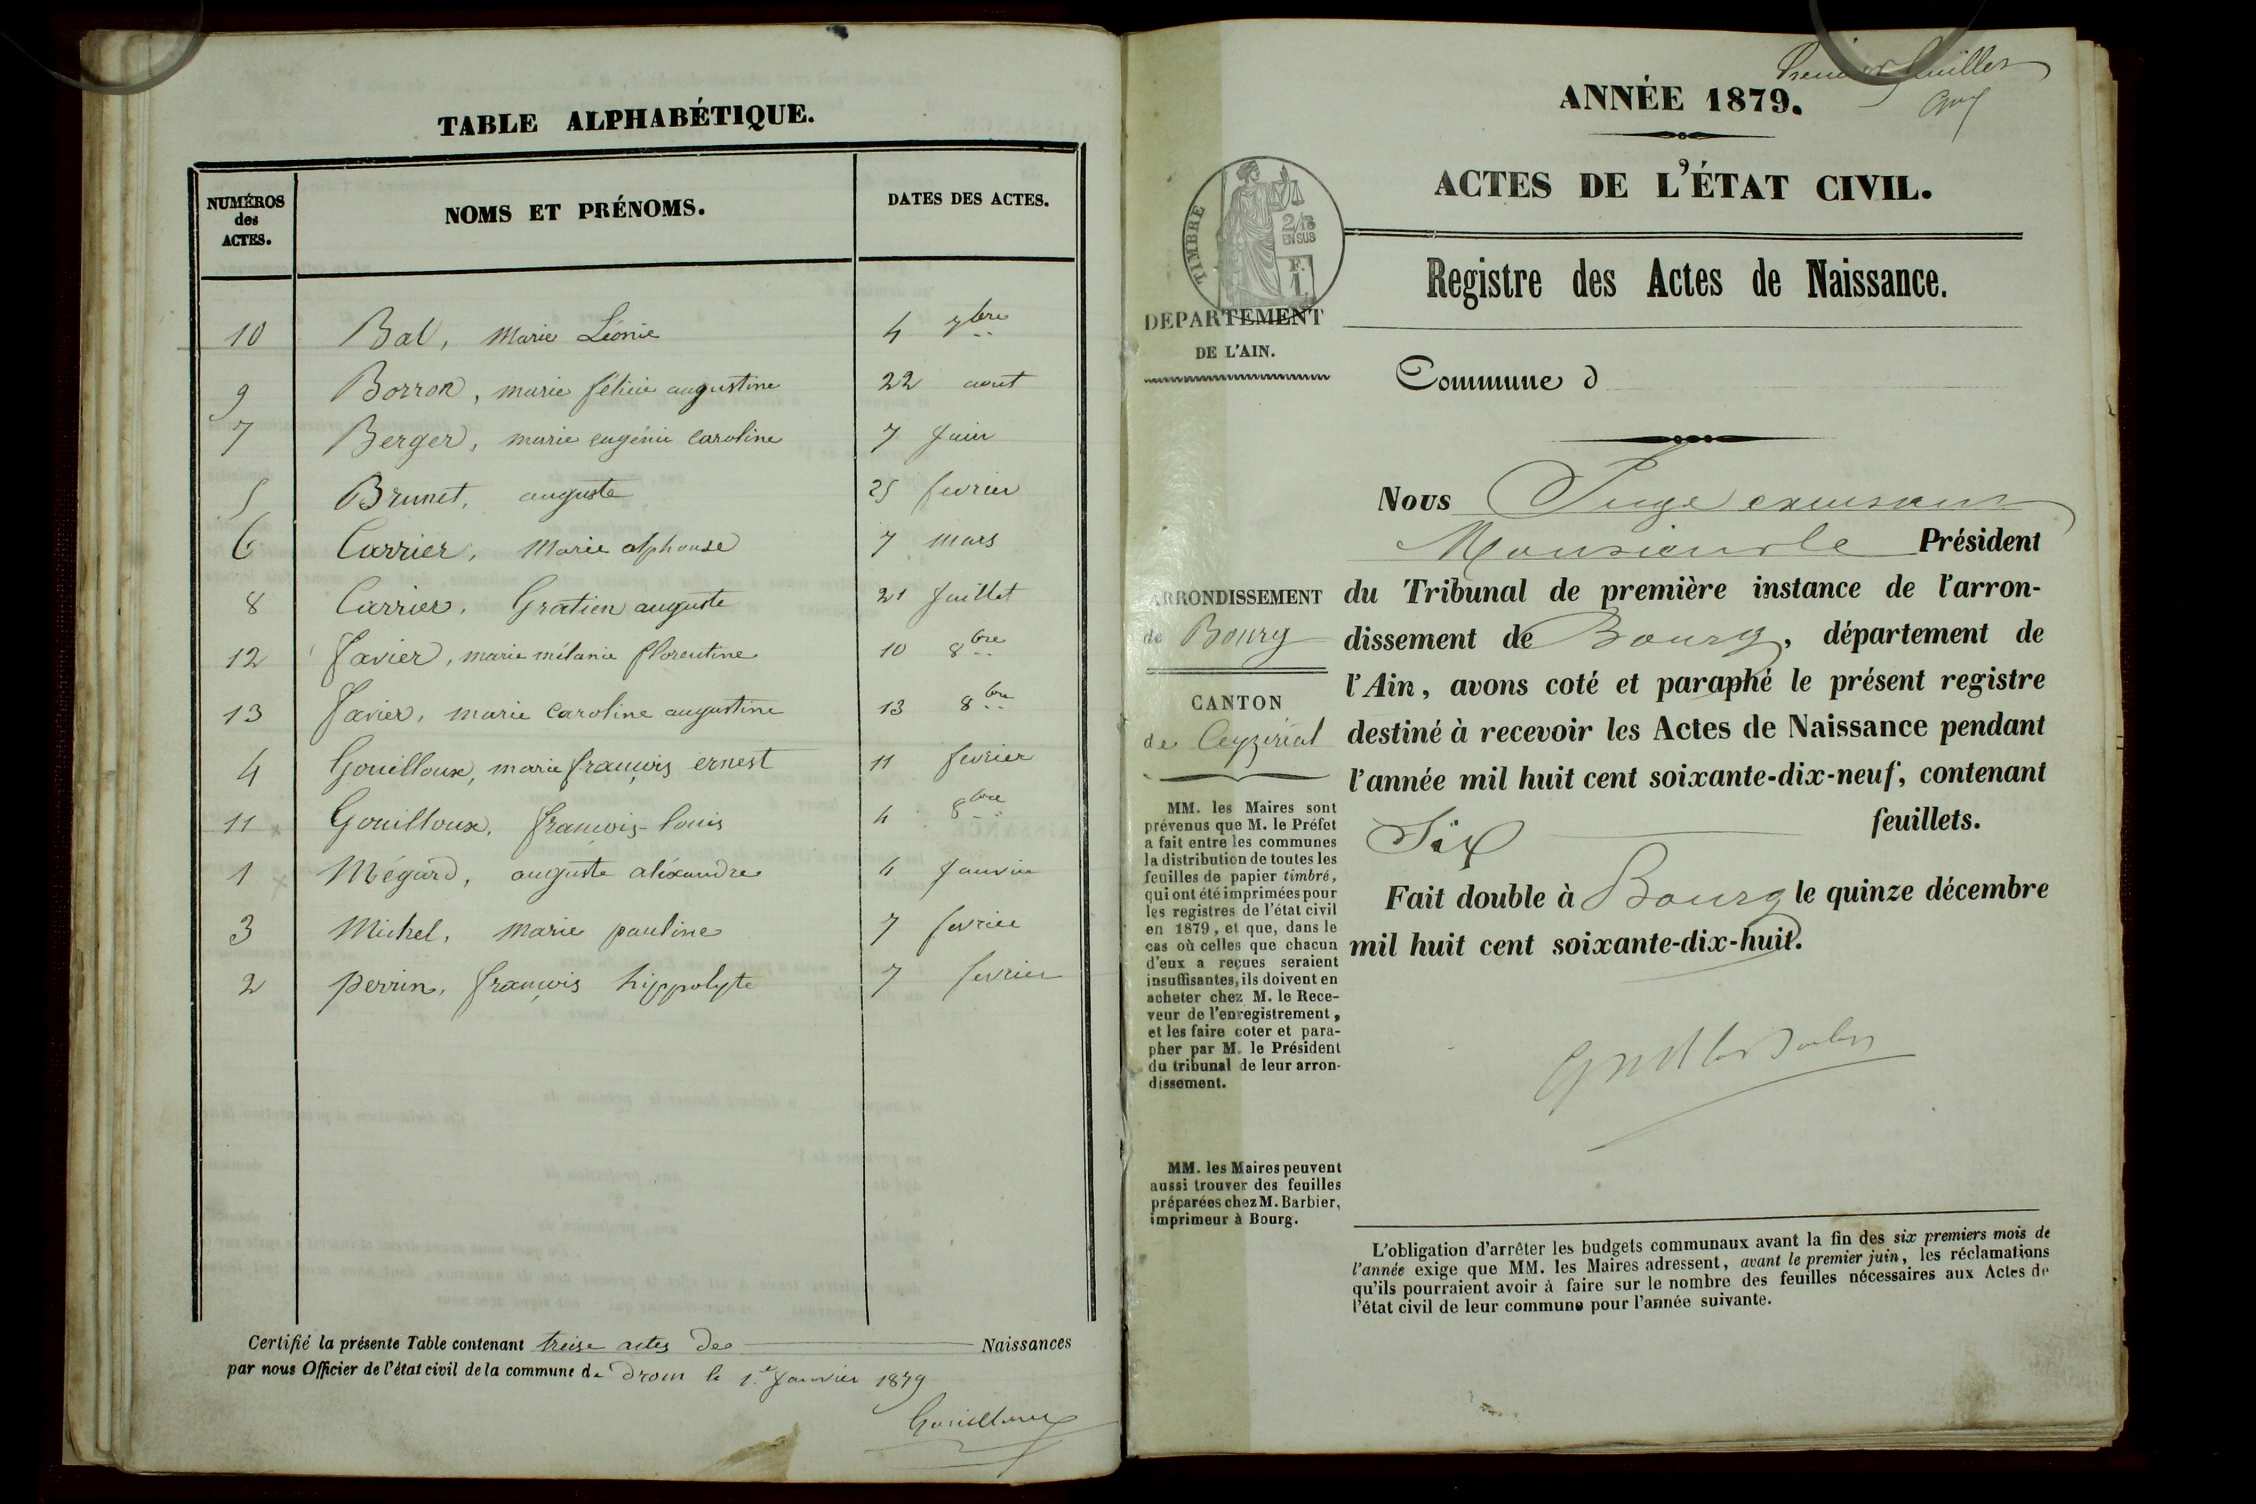 TABLE ALPHABÉTIQUE.
NUMÉROS
des
ACTES.
NOMS ET PRÉNOMS.
DATES DES ACTES.
10 Bal, Marie Léonie 4 7bre
9 Borron, marie félicie augustine 22 aout
7 Berger, marie eugénie caroline 7 Juin
5 Brunet, auguste 25 fevrier
6 Carrier, Marie alphonse 7 mars
8 Carrier, Gratien auguste 21 Juillet
12 Favier, marie mélanie florentine 10 8bre
13 Favier, marie caroline augustine 13 8bre
4 Gouilloux, marie françois ernest 11 fevrier
11 Gouilloux, françois-louis 4 8bre
1 Mégard, auguste aléxandre 4 Janvier
3 Michel, Marie pauline 7 fevrier
2 perrin, françois hippolyte 7 fevrier
Certifié la présente Table contenant treise actes des Naissances
par nous Officier de l'état civil de la commune de Drom le 1er Janvier 1879
Gouilloux
Premier feuillet
ANNÉE 1879.
ACTES DE L'ÉTAT CIVIL.
TIMBRE
2/10
EN SUS
F.
1.
Registre des Actes de Naissance.
DEPARTEMENT
DE L'AIN.
Commune d
Nous Juge
Monsieur le Président
ARRONDISSEMENT
de Bourg
CANTON
de Ceyzériat
du Tribunal de première instance de l'arron-
dissement de Bourg, département de
l'Ain, avons coté et paraphé le présent registre
destiné à recevoir les Actes de Naissance pendant
l'année mil huit cent soixante-dix-neuf, contenant
Six feuillets.
Fait double à Bourg le quinze décembre
mil huit cent soixante-dix-huit.
MM. les Maires sont
prévenus que M. le Préfet
a fait entre les communes
la distribution de toutes les
feuilles de papier timbré,
qui ont été imprimées pour
les registres de l'état civil
en 1879, et que, dans le
cas où celles que chacun
d'eux a reçues seraient
insuffisantes, ils doivent en
acheter chez M. le Rece-
veur de l'enregistrement,
et les faire coter et para-
pher par M. le Président
du tribunal de leur arron-
dissement.
MM. les Maires peuvent
aussi trouver des feuilles
préparées chez M. Barbier,
imprimeur à Bourg.
L'obligation d'arrêter les budgets communaux avant la fin des six premiers mois de
l'année exige que MM. les Maires adressent, avant le premier juin, les réclamations
qu'ils pourraient avoir à faire sur le nombre des feuilles nécessaires aux Actes de
l'état civil de leur commune pour l'année suivante.